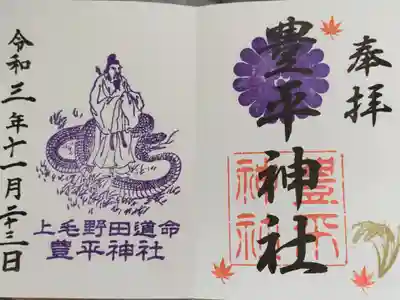 奉拝
豊平神社
豊平
神社
令和三年十一月二十三日
上毛野田道命
豊平神社